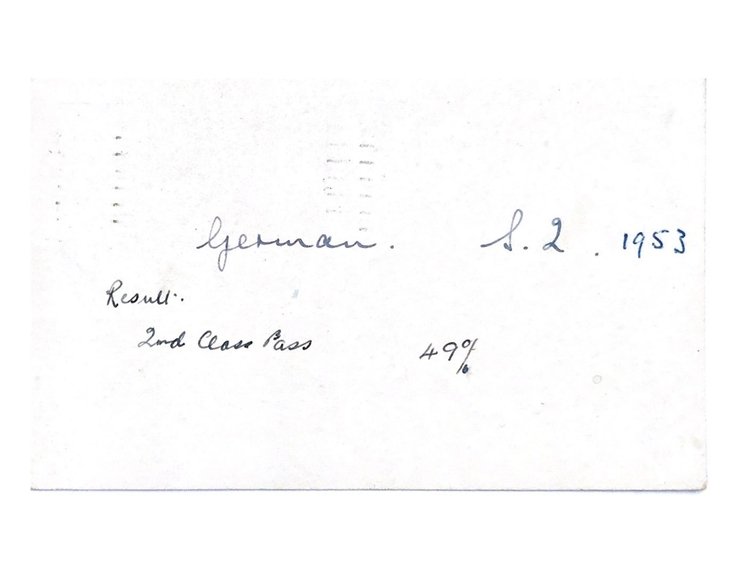 German. S.2. 1953
Result:.
2nd Class Pass 49%